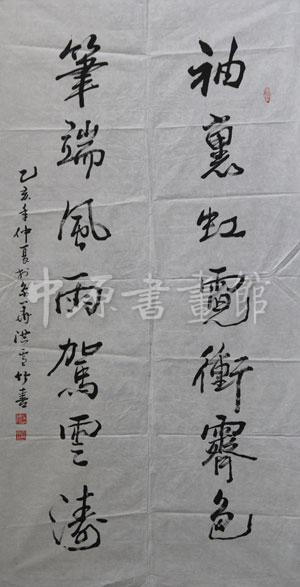 袖裏虹霓衝霽色
筆端風雨駕雲濤
乙亥年仲夏於京華洪雪竹
中原書畫館